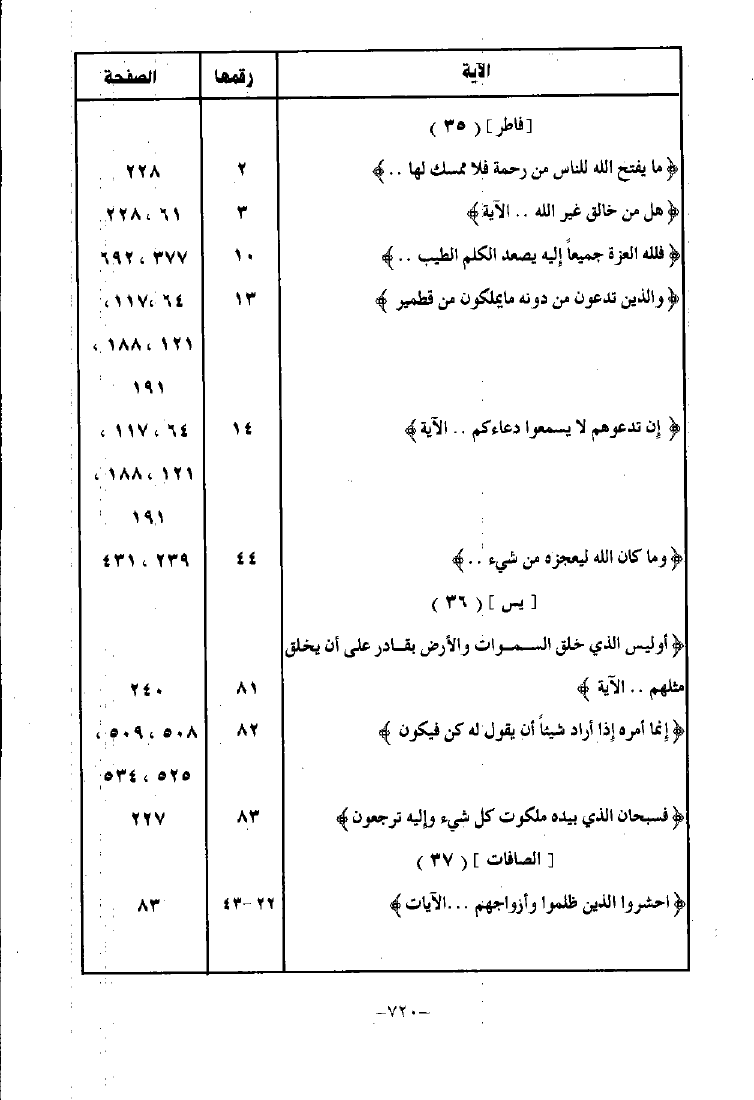 الآية رقمها الصفحة
[ فاطر ] ( ٣٥ )
﴿ ما يفتح الله للناس من رحمة فلا ممسك لها .. ﴾ ٢ ٢٢٨
﴿ هل من خالق غير الله .. الآية ﴾ ٣ ٦١ ، ٢٢٨
﴿ فلله العزة جميعاً إليه يصعد الكلم الطيب .. ﴾ ١٠ ٣٧٧ ، ٦٩٢
﴿ والذين تدعون من دونه مايملكون من قطمير ﴾ ١٣ ٦٤ ، ١١٧ ،
١٢١ ، ١٨٨ ،
١٩١
﴿ إن تدعوهم لا يسمعوا دعاءكم .. الآية ﴾ ١٤ ٦٤ ، ١١٧ ،
١٢١ ، ١٨٨ ،
١٩١
﴿ وما كان الله ليعجزه من شيء .. ﴾ ٤٤ ٢٣٩ ، ٤٣١
[ يس ] ( ٣٦ )
﴿ أوليس الذي خلق السموات والأرض بقادر على أن يخلق
مثلهم .. الآية ﴾ ٨١ ٢٤٠
﴿ إنما أمره إذا أراد شيئاً أن يقول له كن فيكون ﴾ ٨٢ ٥٠٨ ، ٥٠٩ ،
٥٢٥ ، ٥٣٤
﴿ فسبحان الذي بيده ملكوت كل شيء وإليه ترجعون ﴾ ٨٣ ٢٢٧
[ الصافات ] ( ٣٧ )
﴿ احشروا الذين ظلموا وأزواجهم ... الآيات ﴾ ٢٢-٤٣ ٨٣
-٧٢٠-